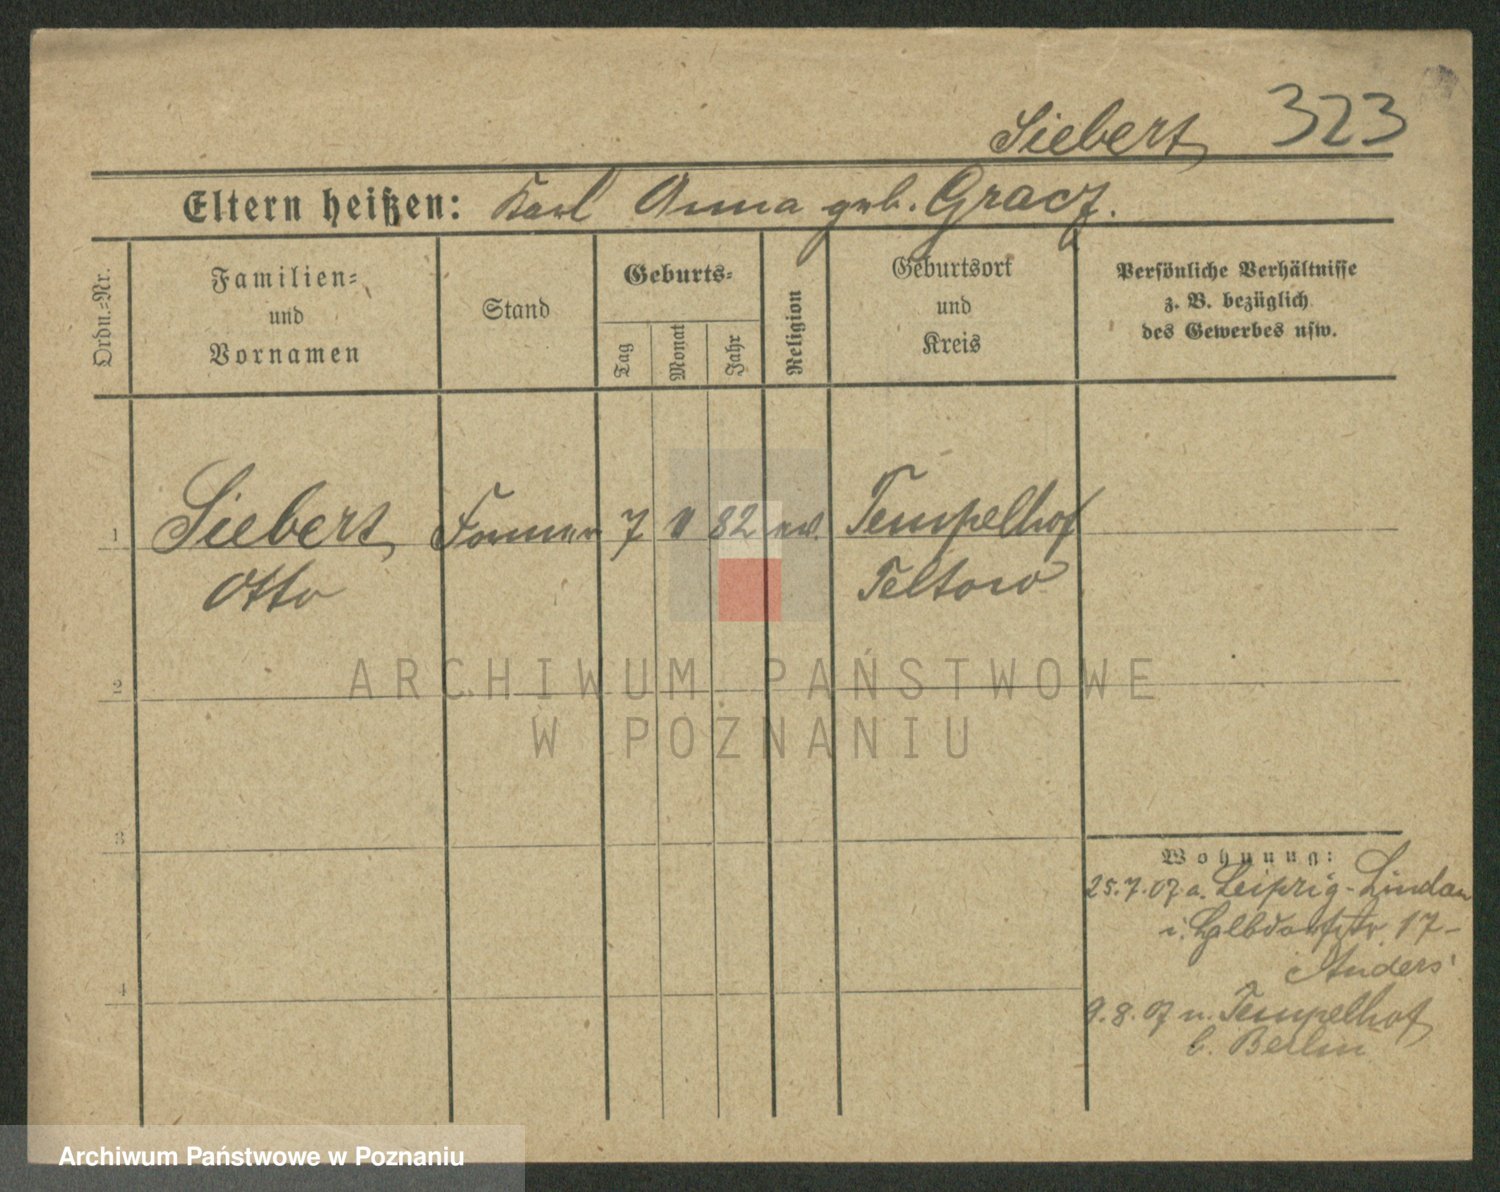 Siebert 323
Eltern heißen: Karl Anna geb. Gracz.
Ordn.-Nr.
Familien-
und
Vornamen
Stand
Geburts-
Tag
Monat
Jahr
Religion
Geburtsort
und
Kreis
Persönliche Verhältnisse
z. B. bezüglich
des Gewerbes usw.
1
Siebert Former 7 82 ev. Tempelhof
Otto Teltow
2
ARCHIWUM PAŃSTWOWE
W POZNANIU
3
Wohnung:
25.7.07 a. Leipzig-Lindau
17-
Anders
4
9.8.07 n. Tempelhof
b. Berlin
Archiwum Państwowe w Poznaniu